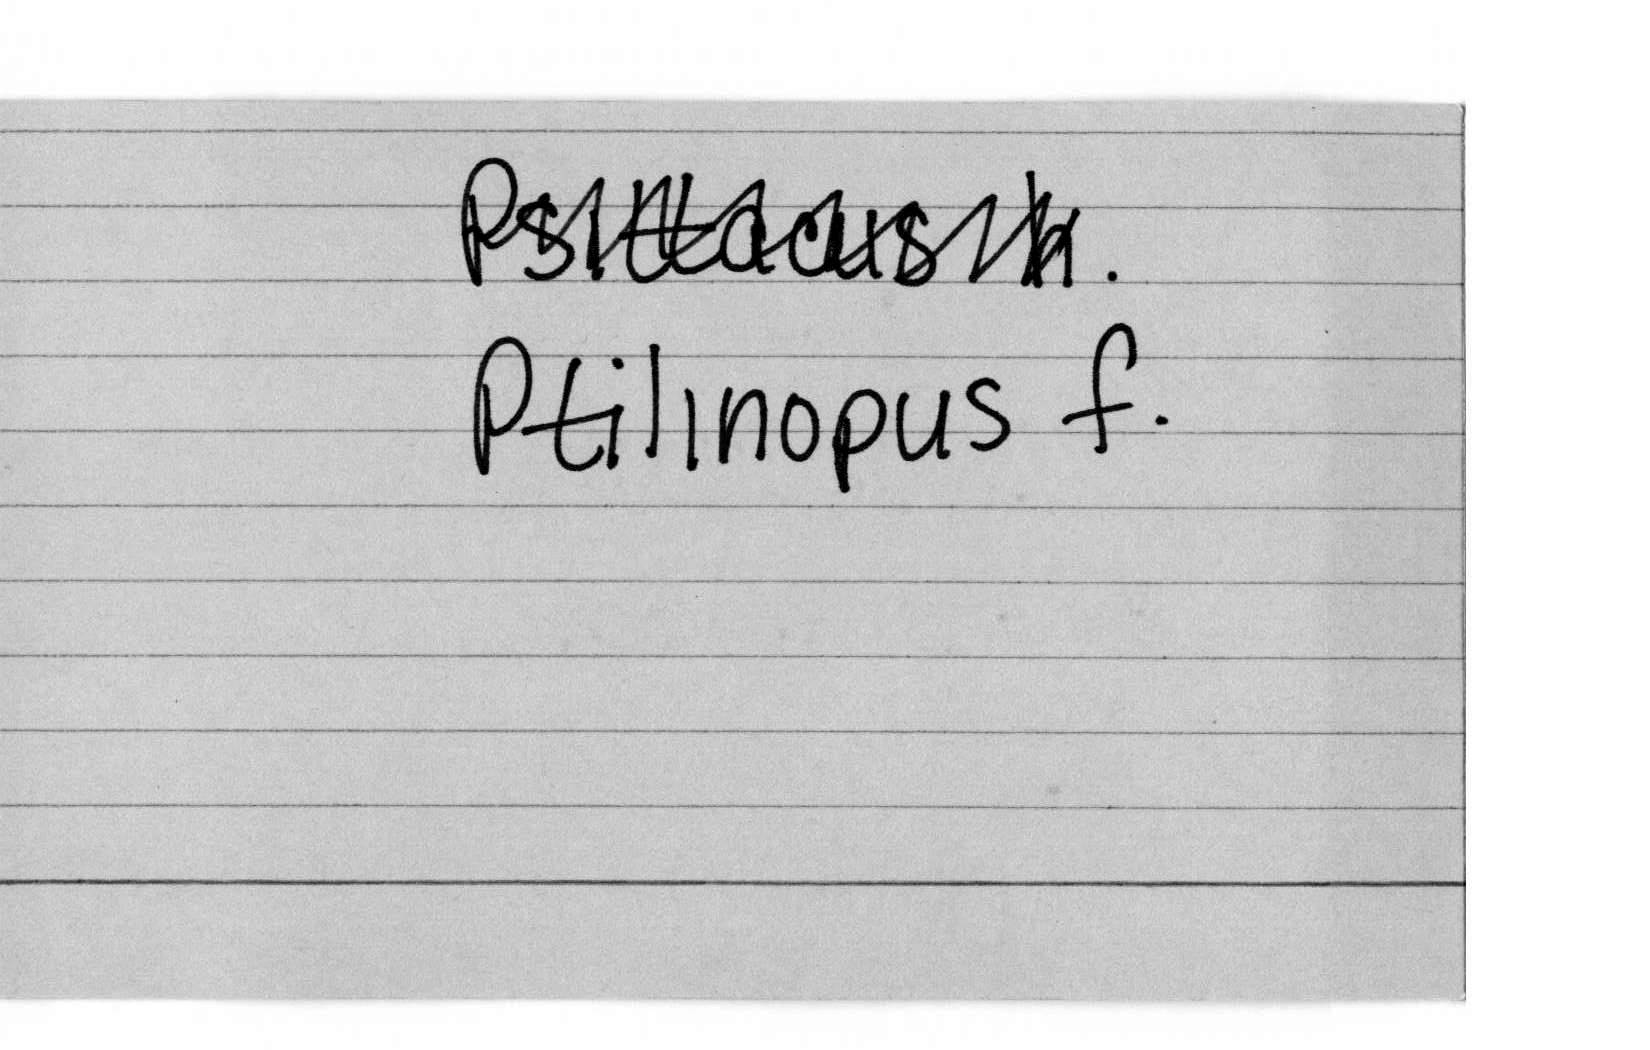 Psittacus h.
Ptilinopus f.